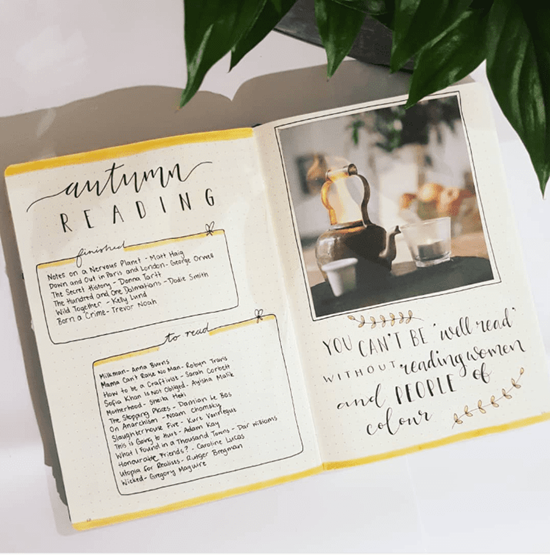 autumn
READING
finished
Notes on a Nervous Planet - Matt Haig
Down and Out in Paris and London - George Orwell
The Secret History - Donna Tartt
The Hundred and One Dalmatians - Dodie Smith
Wild Together - Kelly Lund
Born a Crime - Trevor Noah
to read
Milkman - Anna Burns
Mama Can't Raise No Man - Robyn Travis
How to be a Craftivist - Sarah Corbett
Sofia Khan Is Not Obliged - Ayisha Malik
Motherhood - Sheila Heti
The Stopping Places - Damian Le Bas
On Anarchism - Noam Chomsky
Slaughterhouse Five - Kurt Vonnegut
This is Going to Hurt - Adam Kay
What I Found in a Thousand Towns - Dar Williams
Honourable Friends? - Caroline Lucas
Utopia for Realists - Rutger Bregman
Wicked - Gregory Maguire
YOU CAN'T BE 'well read'
WITHOUT reading women
and PEOPLE of
colour